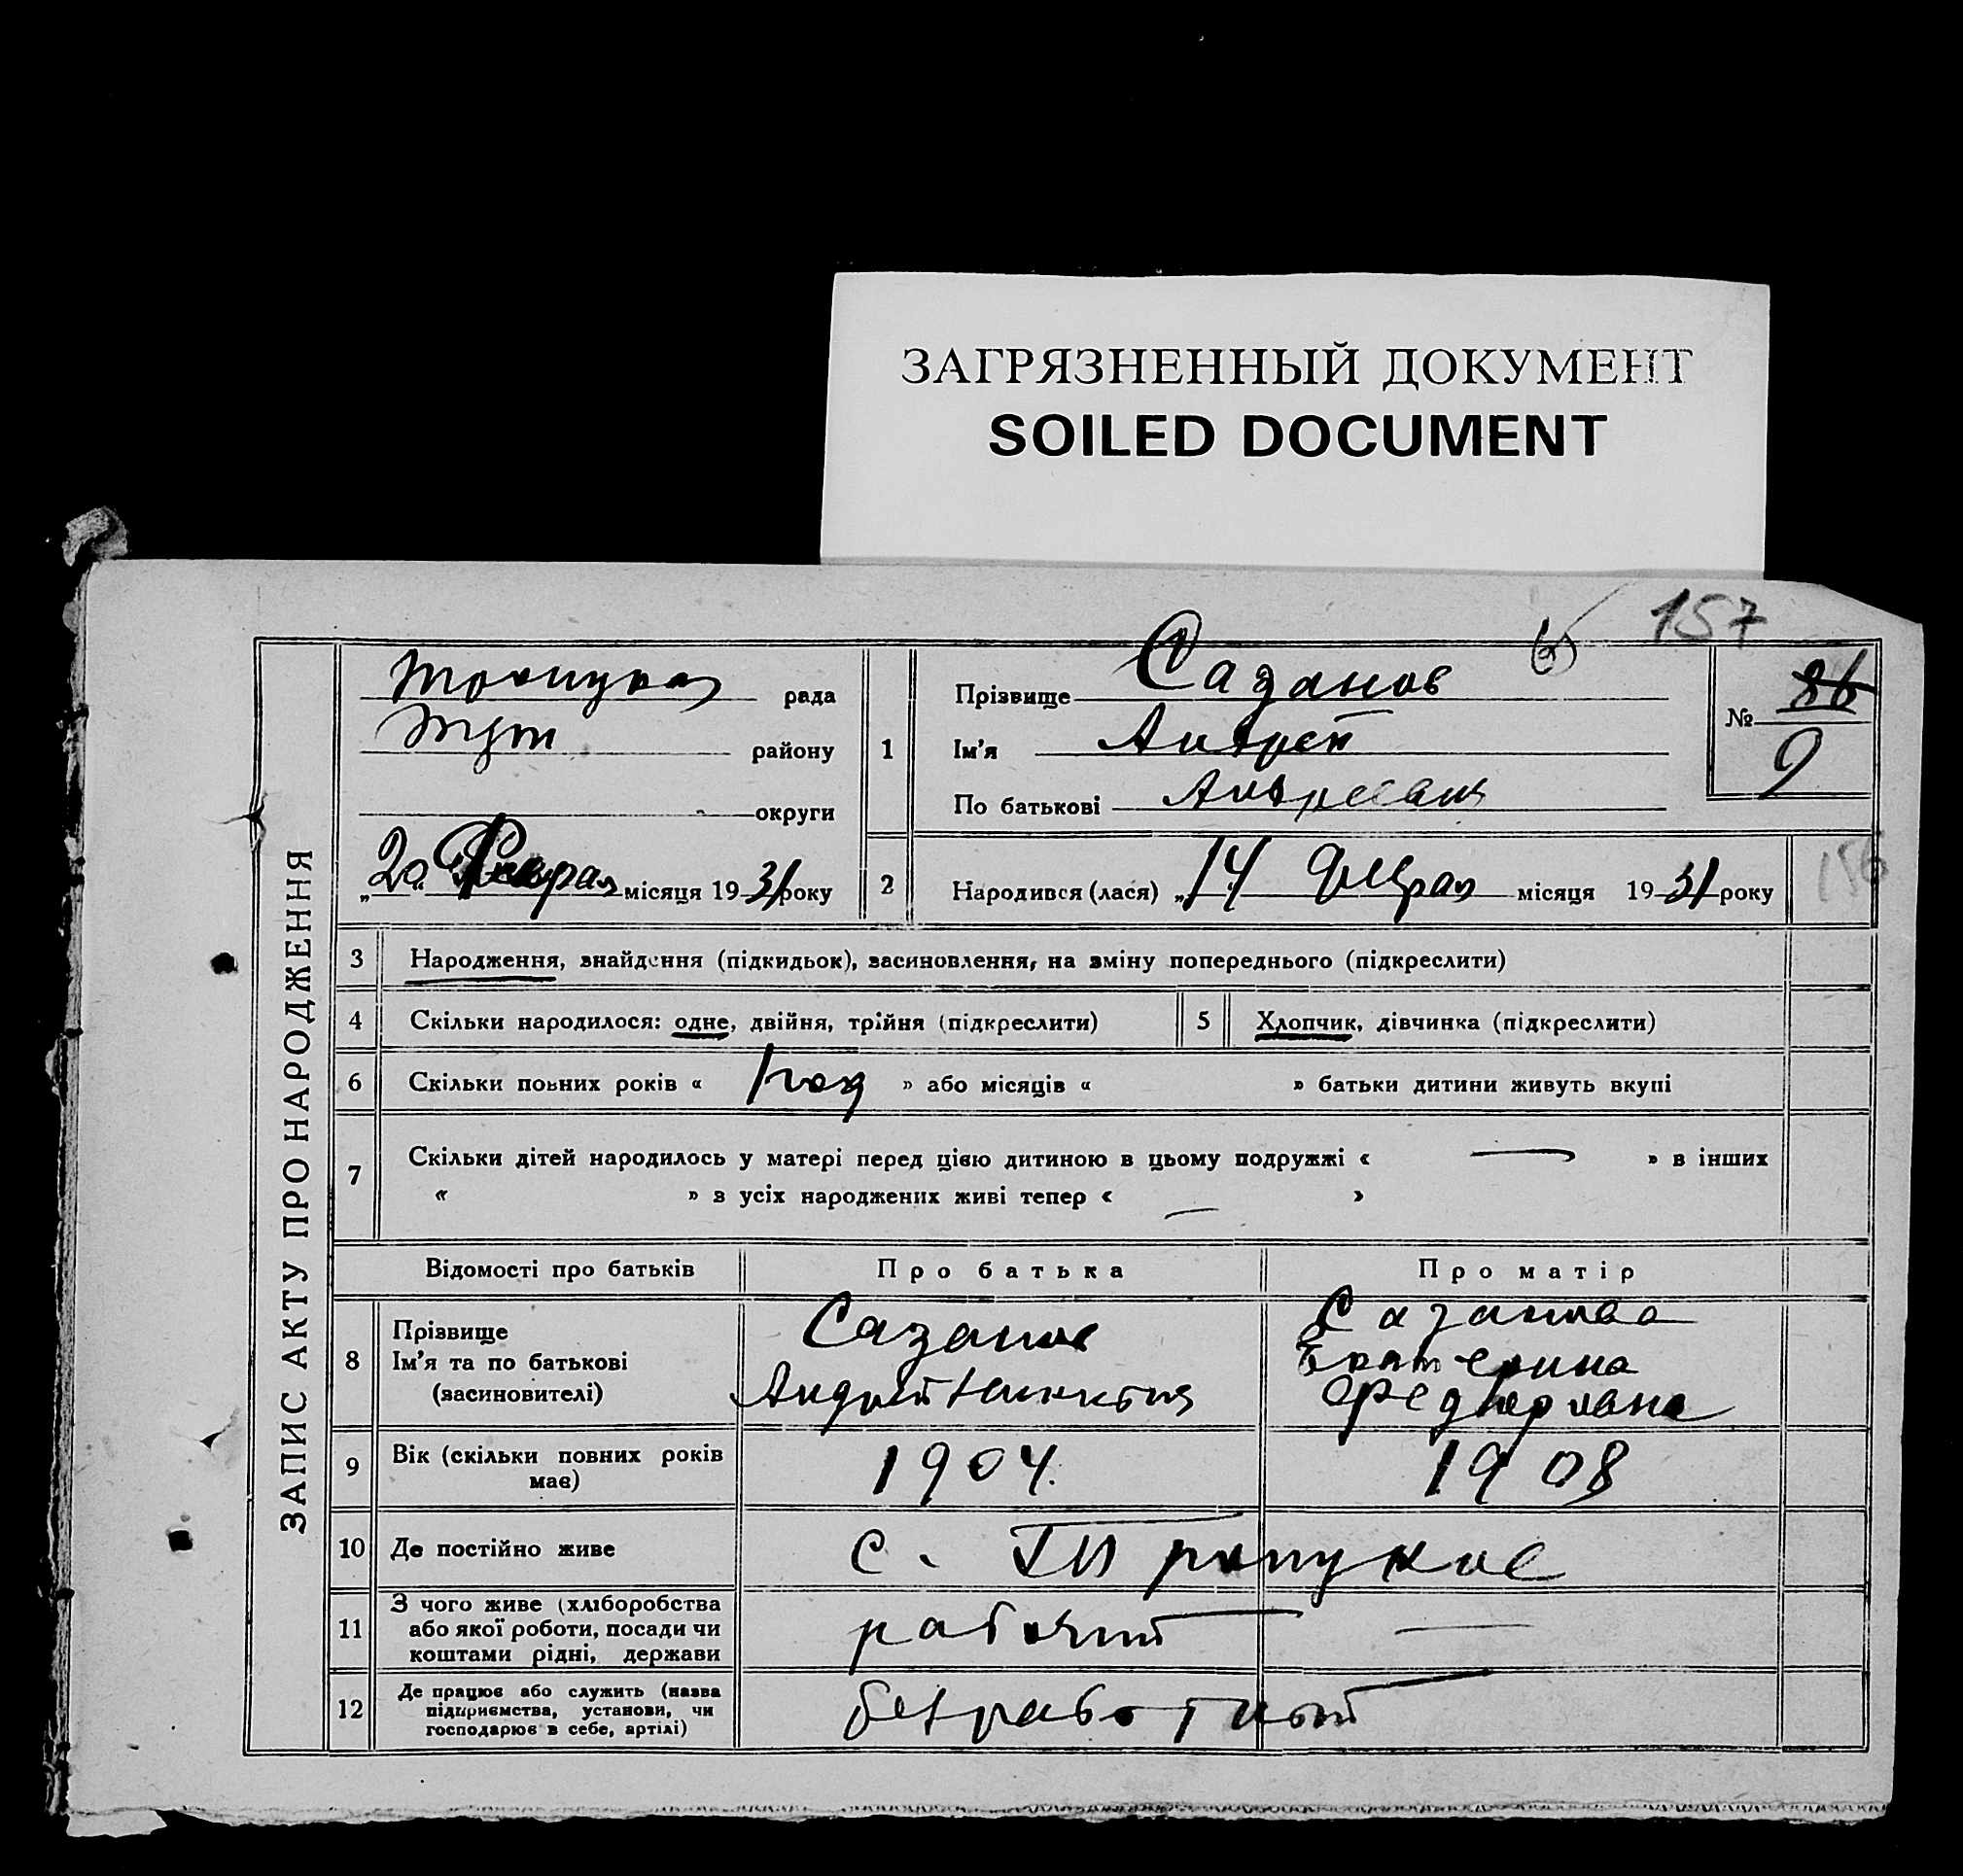 ЗАГРЯЗНЕННЫЙ ДОКУМЕНТ
SOILED DOCUMENT
157
ЗАПИС АКТУ ПРО НАРОДЖЕННЯ
рада
району
округи
„20 Февраля місяця 1931 року
1
Прізвище Сазанов
Ім'я Андрей
По батькові Андреевич
№ 86
9
2
Народився (лася) „14 Февраля місяця 1931 року
156
3 Народження, знайдення (підкидьок), засиновлення, на зміну попереднього (підкреслити)
4 Скільки народилося: одне, двійня, трійня (підкреслити)
5 Хлопчик, дівчинка (підкреслити)
6 Скільки повних років « 1 год » або місяців « » батьки дитини живуть вкупі
7 Скільки дітей народилось у матері перед цією дитиною в цьому подружжі « — » в інших
« » з усіх народжених живі тепер « — »
Відомості про батьків
Про батька
Про матір
8 Прізвище
Ім'я та по батькові
(засиновителі)
Сазанов
Андрей
Сазанова
Екатерина
9 Вік (скільки повних років
має)
1904.
1908
10 Де постійно живе
с.
11 З чого живе (хліборобства
або якої роботи, посади чи
коштами рідні, держави
рабочий
—
12 Де працює або служить (назва
підприємства, установи, чи
господарює в себе, артілі)
безработный